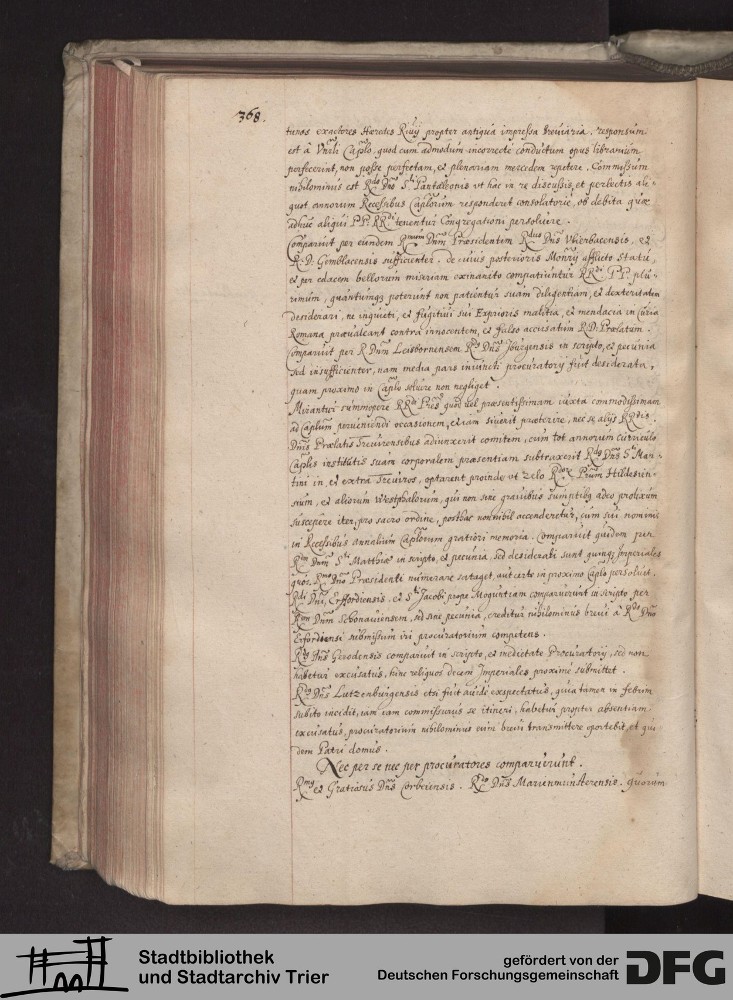 368.
tunos exactores Hæredes Rivij propter antiqua impressa breviaria. responsum
est à Vnrli Caplo, quod cum admodum incorrectè conductum opus librarium
perfecerint, non posse perfectam, et plenariam mercedem repetere. Commissum
nihilominus est Rdo Dno Sti Pantaleonis vt hac in re discussis, et perlectis ali-
quot annorum Recessibus Caplorum respondeat consolatorie, ob debita quæ
adhuc aliqui PP. RRdi tenentur Congregationi persoluere.
Comparuit per eundem Rmum Dnm Præsidentem Rdus Dns Vherbacensis, et
R.D. Gemblacensis sufficienter. de cuius posterioris Monrij afflicto statu,
et per edacem bellorum miseriam exinanito compatiuntur RRdi PP. plu-
rimum, quantumqz poterunt non patientur suam diligentiam, et dexteritatem
desiderari, ne inquieti, et fugitiui sui Exprioris malitia, et mendacia in Curia
Romana præualeant contra innocentem, et falso accusatum R.D. Prælatum.
Comparuit per R. Dnm Leisbornensem Rds Dns Iburgensis in scripto, et pecunia
sed insufficienter, nam media pars procuratorij fuit desiderata,
quam proximo in Caplo soluere non negliget.
Mirantur summopere RRdi Pres quod vel præsentissimam iuxta commodissimam
ad Caplum perueniendi occasionem, etiam siuerit præterire, nec se alijs RRdis
Dnis Prælatis Treuirensibus adiunxerit comitem, cum tot annorum curriculo
Caplis institutis suam corporalem præsentiam subtraxerit Rds Dns Sti Mar-
tini in, et extra Treuiros, optarent proinde vt zelo RRdor Prum Hildesien-
sium, et aliorum Westphalorum, qui non sine grauibus sumptibus adeo prolixum
suscepere iter, pro sacro ordine, posthac nonnihil accenderetur, cum sui nominis
in Recessibus annalium Caplorum gratiori memoria. Comparuit quidem per
Rm Dnm Sti Matthiæ in scripto, et pecunia, sed desiderati sunt quinqz Imperiales
quos Rmo Dno Præsidenti numerare sataget, aut certe in proximo Caplo persoluet.
Rdi Dni, Erffordiensis. et Sti Jacobi prope Moguntiam comparuerunt in scripto per
Rm Dnm Schonauiensem, sed sine pecunia, creditur nihilominus breui à Rdo Dno
Erfordiensi submissum iri procuratorium competens.
Rds Dns Gerodensis comparuit in scripto, et medietate Procuratorij, sed non
habetur excusatus, hinc reliquos decem Imperiales proximè submittet.
Rds Dns Lutzenburgensis etsi fuit auidè exspectatus, quia tamen in febrim
subito incidit, iam iam commissurus se itineri, habetur propter absentiam
excusatus, procuratorium nihilominus eum breui transmittere oportebit, et qui-
dem Patri domus.
Nec per se nec per procuratores comparuerunt.
Rmus et Gratiosus Dns Corbeiensis. Rds Dns Marienmunsterensis. quorum
Stadtbibliothek
und Stadtarchiv Trier
gefördert von der
Deutschen Forschungsgemeinschaft
DFG